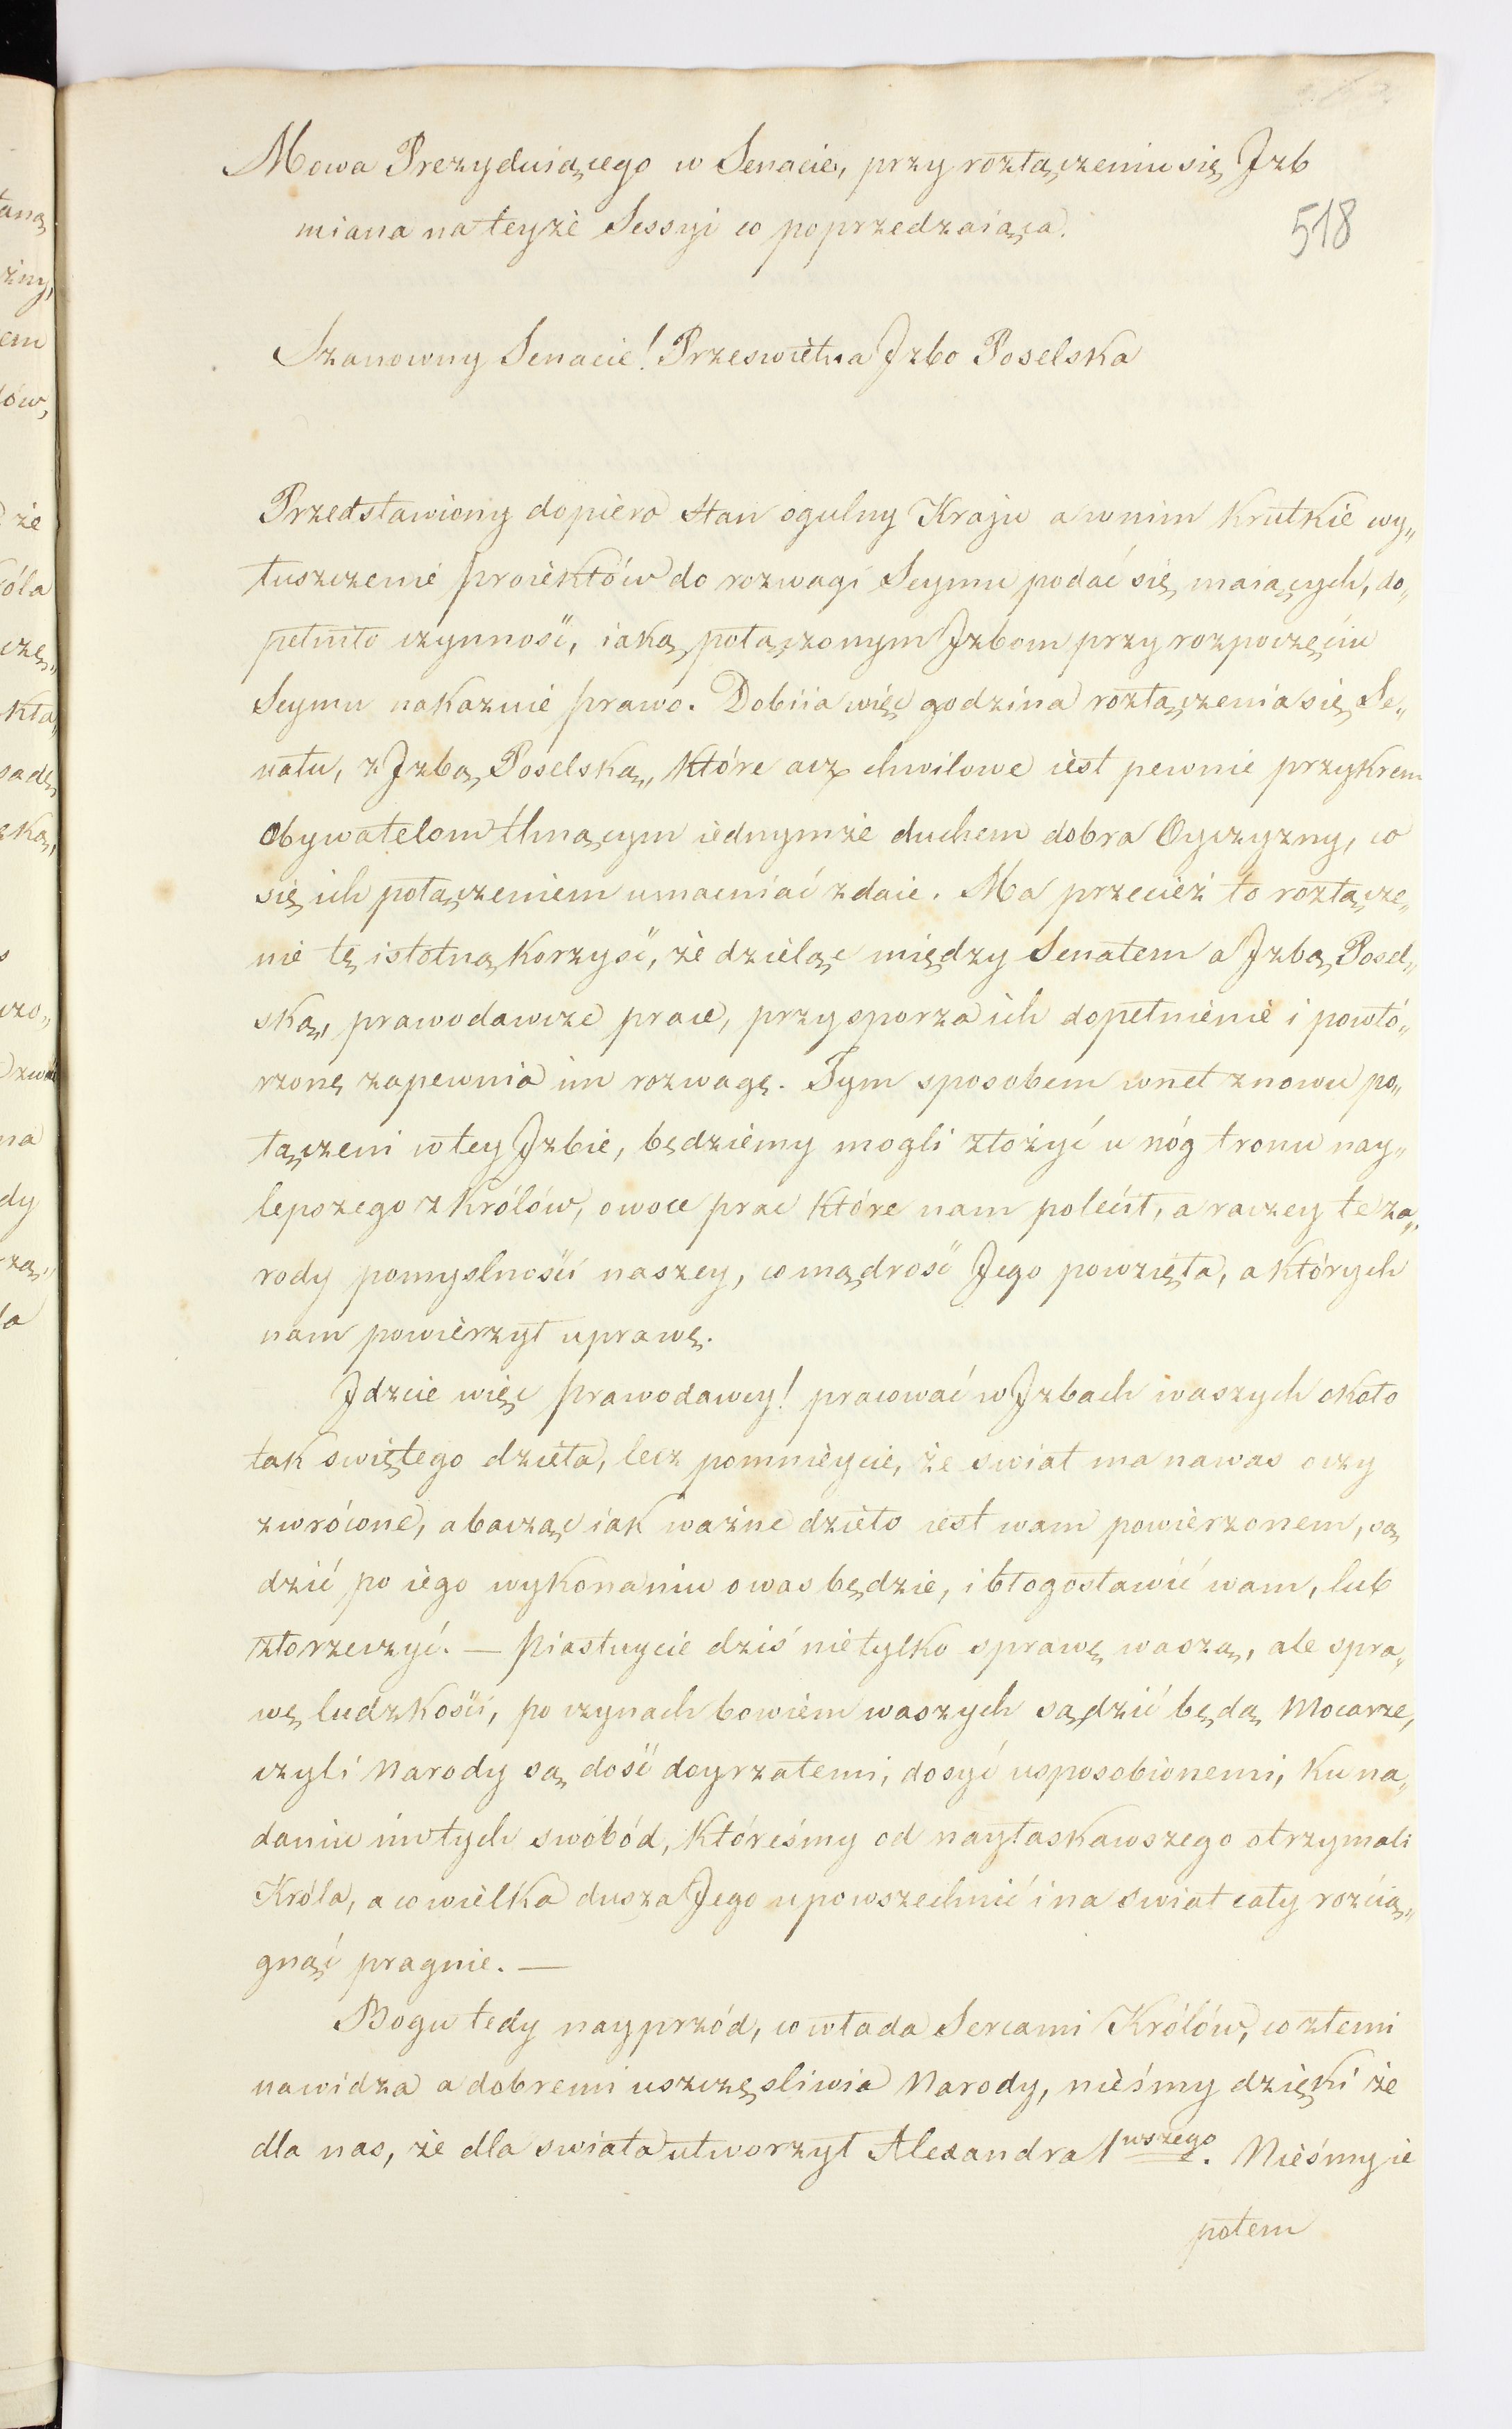 Mowa Prezyduiącego w Senacie, przy rozłączeniu się Jzb
miana na teyże Sessyi co poprzedzaiąca.
518
Szanowny Senacie! Przeswietna Jzbo Poselska
Przedstawiony dopiero Stan ogulny Kraju a w nim krutkie wy„
łuszczenie proiektów do rozwagi Seymu podać się maiących, do„
pełniło czynność, iaką połączonym Jzbom przy rozpoczęciu
Seymu nakazuie prawo. Dobiia więc godzina rozłączenia się Se„
natu, z Jzbą Poselską, które acz chwilowe iest pewnie przykrem
Obywatelom tlnącym iednymże duchem dobra Oyczyzny, co
się ich połączeniem umacniać zdaie. Ma przecież to rozłącze„
nie tę istotną korzyść, że dzieląc między Senatem a Jzbą Posel„
ską, prawodawcze prace, przysporza ich dopełnienie i powtó„
rzoną zapewnia im rozwagę. Tym sposobem wnet znowu po„
łączeni w tey Jzbie, będziemy mogli złożyć u nóg tronu nay„
lepszego z Królów, owoce prac które nam polécił, a raczey te za„
rody pomyslności naszey, co mądrość Jego powzięła, a których
nam powierzył uprawę.
Jdzcie więc prawodawcy! pracować w Jzbach waszych około
tak swiętego dzieła, lecz pomnieycie, że swiat ma na was oczy
zwrócone, a bacząc iak ważne dzieło iest wam powierzonem, są
dzić po iego wykonaniu o was będzie, i błogosławić wam, lub
złorzeczyć. — Piastuycie dziś nietylko sprawę waszą, ale spra„
wę ludzkości, po czynach bowiem waszych sądzić będą Mocarze,
czyli Narody są dość doyrzałemi, dosyć usposobionemi, ku na„
daniu im tych swobód, któreśmy od nayłaskawszego otrzymali
Króla, a co wielka dusza Jego upowszechnić i na swiat cały rozcią„
gnąć pragnie. —
Bogu tedy nayprzód, co włada Sercami Królów, co złemi
nawidza a dobremi uszczęsliwia Narody, nieśmy dzięki że
dla nas, że dla swiata utworzył Alexandra 1wszego. Nieśmy ie
potem